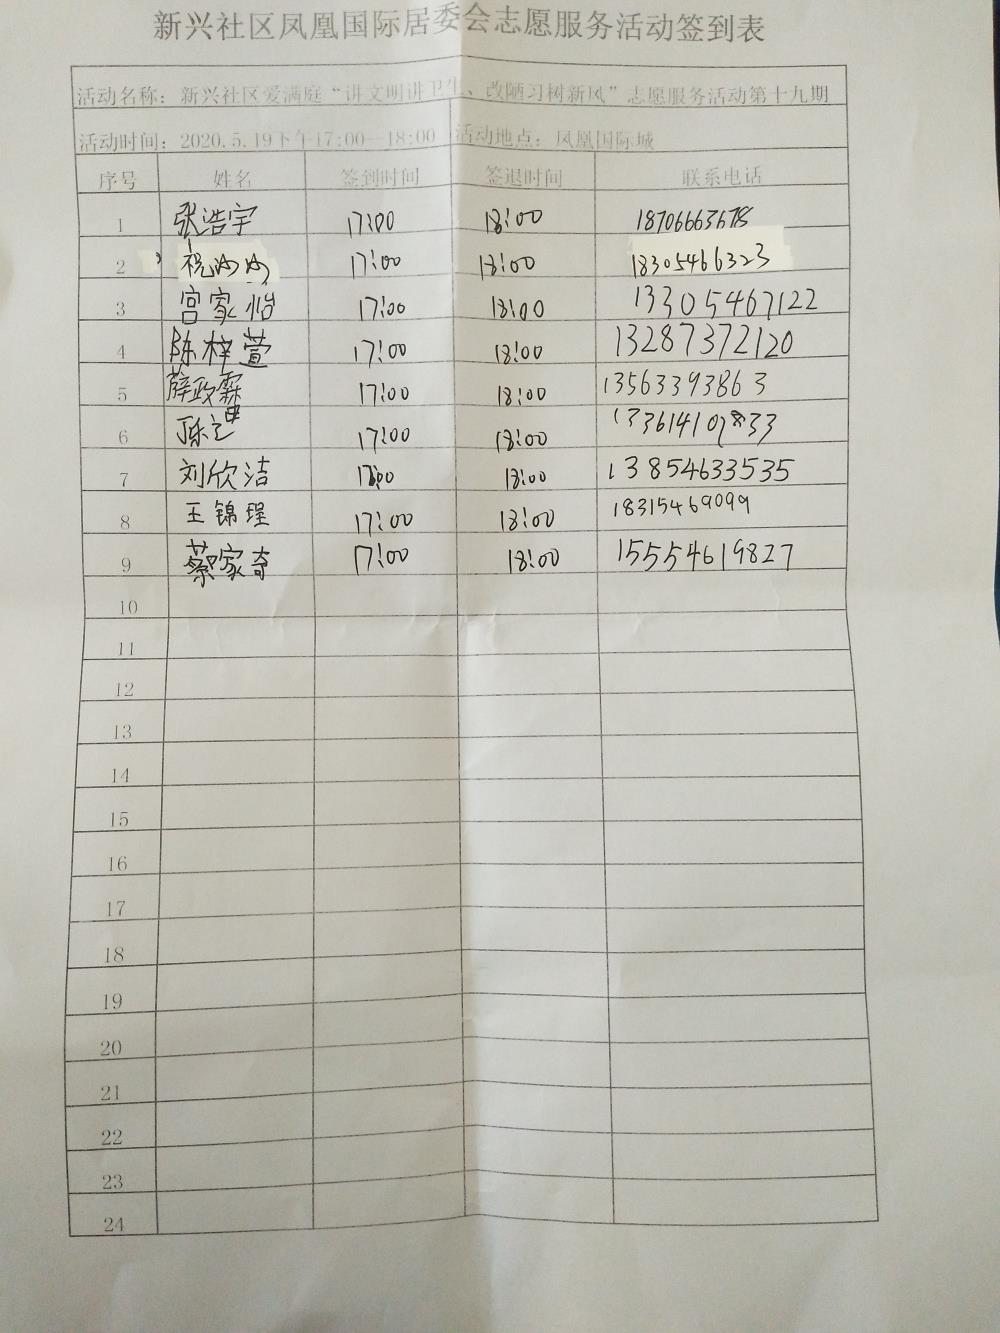 新兴社区凤凰国际居委会志愿服务活动签到表
活动名称：新兴社区爱满庭“讲文明讲卫生、改陋习树新风”志愿服务活动第十九期
活动时间：2020.5.19下午17:00—18:00 活动地点：凤凰国际城
序号 姓名 签到时间 签退时间 联系电话
1 张浩宇 17:00 18:00 18706663678
2 祝 17:00 18:00 18305466323
3 宫家怡 17:00 18:00 13305467122
4 陈梓萱 17:00 18:00 13287372120
5 薛政霖 17:00 18:00 13563393863
6 17:00 18:00
7 刘欣洁 17:00 18:00 13854633535
8 王锦程 17:00 18:00 18315469099
9 蔡家奇 17:00 18:00 15554619827
10
11
12
13
14
15
16
17
18
19
20
21
22
23
24